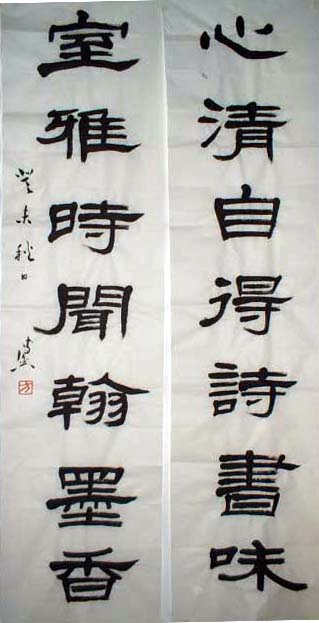 心清自得詩書味
室雅時聞翰墨香
癸未秋日